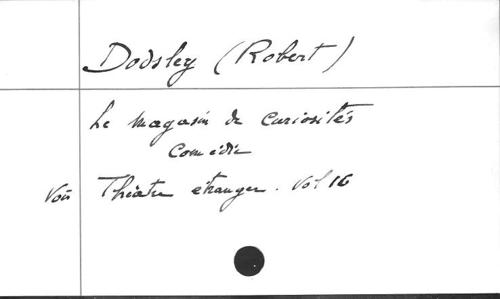 Dodsley (Robert)
Le magasin de curiosités
comédie
Voir Théâtre étranger. Vol 16